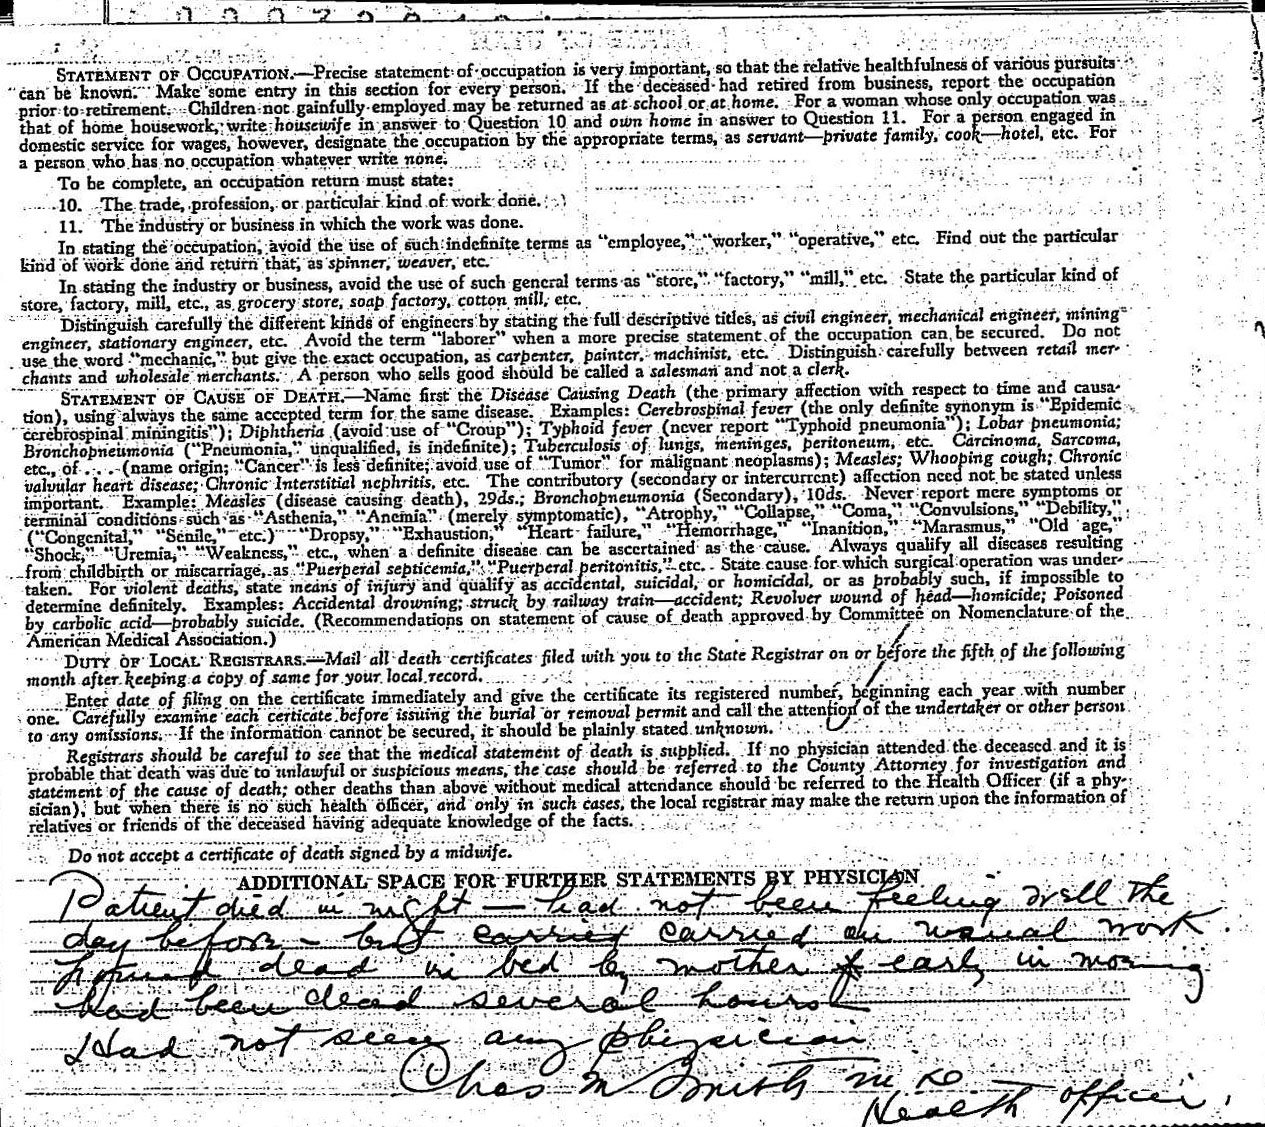 STATEMENT OF OCCUPATION.—Precise statement of occupation is very important, so that the relative healthfulness of various pursuits
can be known. Make some entry in this section for every person. If the deceased had retired from business, report the occupation
prior to retirement. Children not gainfully employed may be returned as at school or at home. For a woman whose only occupation was
that of home housework, write housewife in answer to Question 10 and own home in answer to Question 11. For a person engaged in
domestic service for wages, however, designate the occupation by the appropriate terms, as servant—private family, cook—hotel, etc. For
a person who has no occupation whatever write none.
To be complete, an occupation return must state:
10. The trade, profession, or particular kind of work done.
11. The industry or business in which the work was done.
In stating the occupation, avoid the use of such indefinite terms as "employee," "worker," "operative," etc. Find out the particular
kind of work done and return that, as spinner, weaver, etc.
In stating the industry or business, avoid the use of such general terms as "store," "factory," "mill," etc. State the particular kind of
store, factory, mill, etc., as grocery store, soap factory, cotton mill, etc.
Distinguish carefully the different kinds of engineers by stating the full descriptive titles, as civil engineer, mechanical engineer, mining
engineer, stationary engineer, etc. Avoid the term "laborer" when a more precise statement of the occupation can be secured. Do not
use the word "mechanic," but give the exact occupation, as carpenter, painter, machinist, etc. Distinguish carefully between retail mer-
chants and wholesale merchants. A person who sells good should be called a salesman and not a clerk.
STATEMENT OF CAUSE OF DEATH.—Name first the Disease Causing Death (the primary affection with respect to time and causa-
tion), using always the same accepted term for the same disease. Examples: Cerebrospinal fever (the only definite synonym is "Epidemic
cerebrospinal miningitis"); Diphtheria (avoid use of "Croup"); Typhoid fever (never report "Typhoid pneumonia"); Lobar pneumonia;
Bronchopneumonia ("Pneumonia," unqualified, is indefinite); Tuberculosis of lungs, meninges, peritoneum, etc. Carcinoma, Sarcoma,
etc., of . . . . (name origin; "Cancer" is less definite; avoid use of "Tumor" for malignant neoplasms); Measles; Whooping cough; Chronic
valvular heart disease; Chronic Interstitial nephritis, etc. The contributory (secondary or intercurrent) affection need not be stated unless
important. Example: Measles (disease causing death), 29ds.; Bronchopneumonia (Secondary), 10ds. Never report mere symptoms or
terminal conditions such as "Asthenia," "Anemia" (merely symptomatic), "Atrophy," "Collapse," "Coma," "Convulsions," "Debility,"
("Congenital," "Senile," etc.) "Dropsy," "Exhaustion," "Heart failure," "Hemorrhage," "Inanition," "Marasmus," "Old age,"
"Shock," "Uremia," "Weakness," etc., when a definite disease can be ascertained as the cause. Always qualify all diseases resulting
from childbirth or miscarriage, as "Puerperal septicemia," "Puerperal peritonitis," etc. State cause for which surgical operation was under-
taken. For violent deaths, state means of injury and qualify as accidental, suicidal, or homicidal, or as probably such, if impossible to
determine definitely. Examples: Accidental drowning; struck by railway train—accident; Revolver wound of head—homicide; Poisoned
by carbolic acid—probably suicide. (Recommendations on statement of cause of death approved by Committee on Nomenclature of the
American Medical Association.)
DUTY OF LOCAL REGISTRARS.—Mail all death certificates filed with you to the State Registrar on or before the fifth of the following
month after keeping a copy of same for your local record.
Enter date of filing on the certificate immediately and give the certificate its registered number, beginning each year with number
one. Carefully examine each certicate before issuing the burial or removal permit and call the attention of the undertaker or other person
to any omissions. If the information cannot be secured, it should be plainly stated unknown.
Registrars should be careful to see that the medical statement of death is supplied. If no physician attended the deceased and it is
probable that death was due to unlawful or suspicious means, the case should be referred to the County Attorney for investigation and
statement of the cause of death; other deaths than above without medical attendance should be referred to the Health Officer (if a phy-
sician), but when there is no such health officer, and only in such cases, the local registrar may make the return upon the information of
relatives or friends of the deceased having adequate knowledge of the facts.
Do not accept a certificate of death signed by a midwife.
ADDITIONAL SPACE FOR FURTHER STATEMENTS BY PHYSICIAN
Patient died in night — had not been feeling well the
day before — but carried carried on usual work.
found dead in bed by mother early in morning
had been dead several hours
Had not seen any physician
Chas M Smith M D
Health officer.